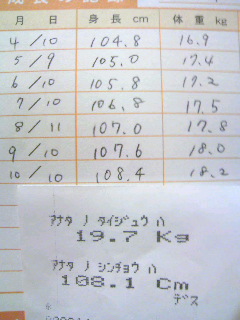 月 日 身 長 cm 体 重 kg
4/10 104.8 16.9
5/9 105.0 17.4
6/10 105.8 17.2
7/10 106.8 17.5
8/11 107.0 17.8
9/10 107.6 18.0
10/10 108.4 18.2
アナタ ノ タイジュウ ハ
19.7 Kg
アナタ ノ シンチョウ ハ
108.1 Cm
デス